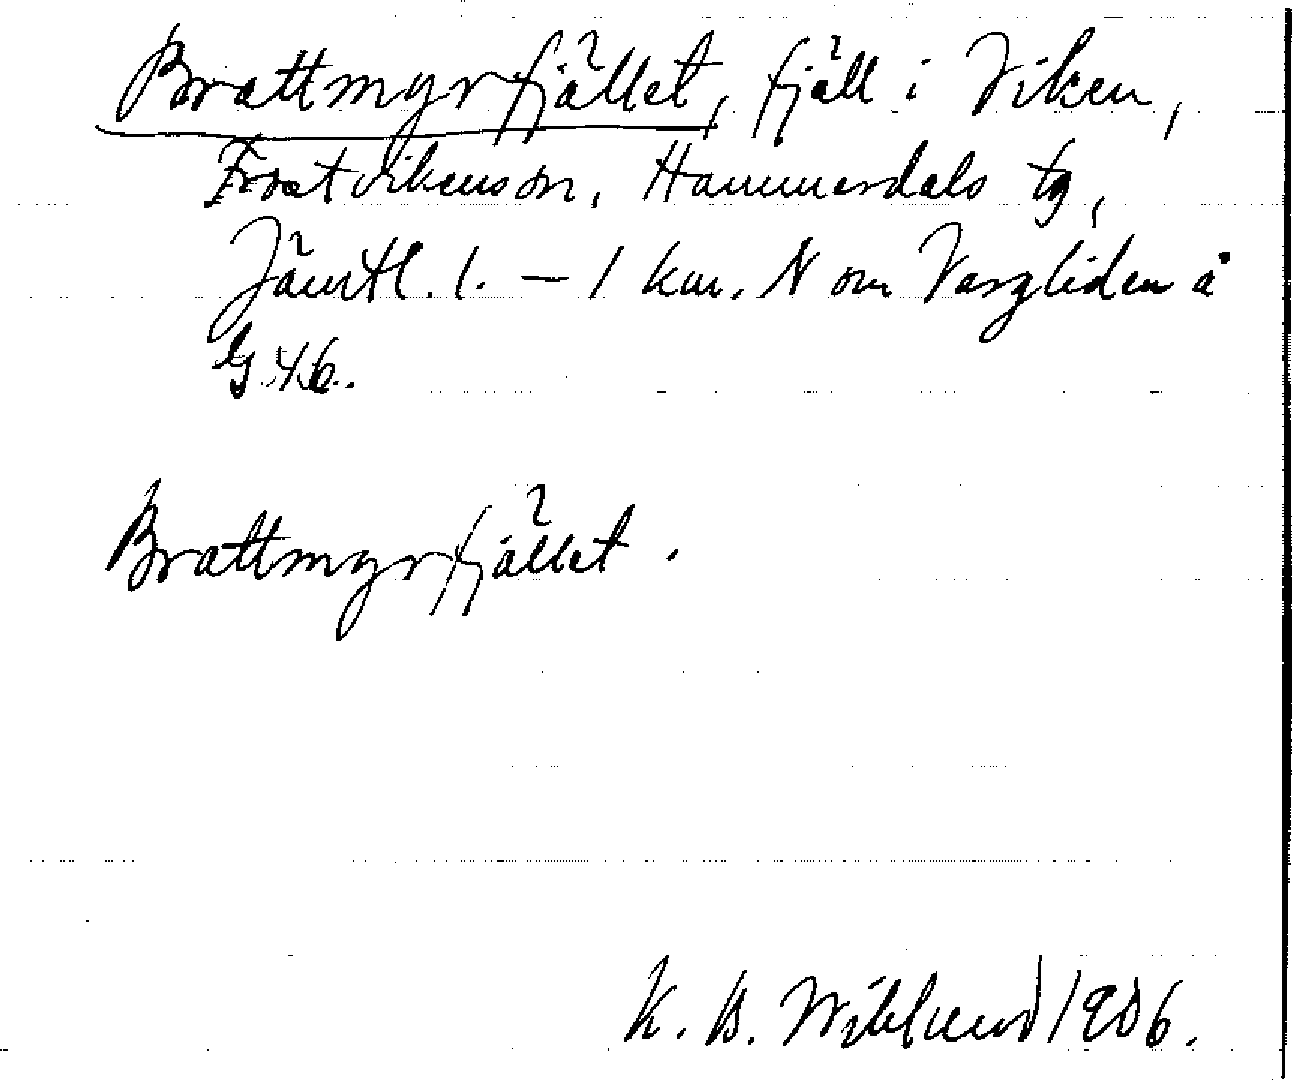 Brattmyrfjället, fjäll i Viken,
Frostvikens sn, Hammerdals tg,
Jämtl. l. — 1 km. N om Vargliden å
G. 46.
Brattmyrfjället.
K. B. Wiklund 1906.